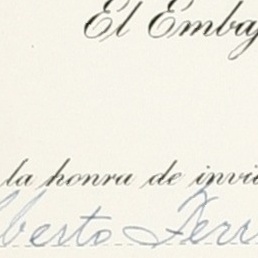 El Emba
la honra de invi
lberto Ferr